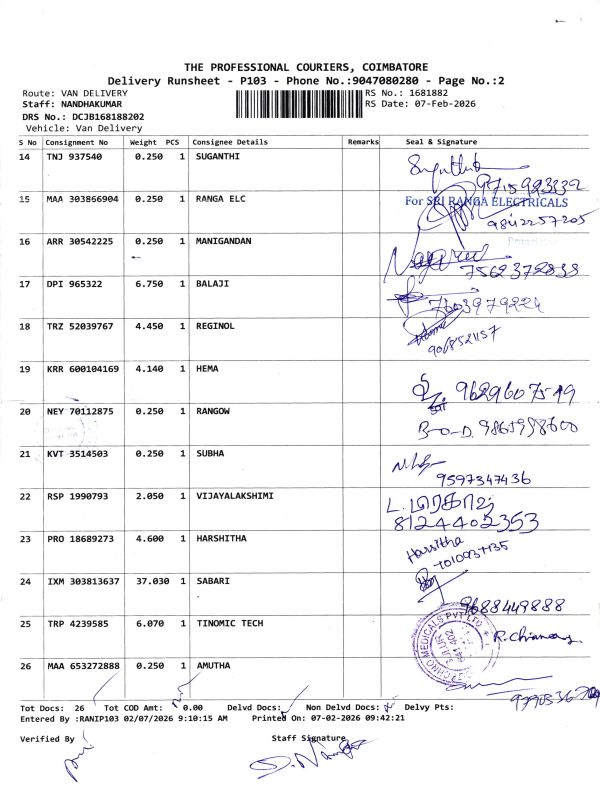 THE PROFESSIONAL COURIERS, COIMBATORE
Delivery Runsheet - P103 - Phone No.:9047080280 - Page No.:2
Route: VAN DELIVERY RS No.: 1681882
Staff: NANDHAKUMAR RS Date: 07-Feb-2026
DRS No.: DCJB168188202
Vehicle: Van Delivery
S No Consignment No Weight PCS Consignee Details Remarks Seal & Signature
14 TNJ 937540 0.250 1 SUGANTHI
9715923332
15 MAA 303866904 0.250 1 RANGA ELC For SRI RANGA ELECTRICALS
9842257205
16 ARR 30542225 0.250 1 MANIGANDAN
7562372833
17 DPI 965322 6.750 1 BALAJI
7603979224
18 TRZ 52039767 4.450 1 REGINOL
19 KRR 600104169 4.140 1 HEMA
9629607519
20 NEY 70112875 0.250 1 RANGOW
21 KVT 3514503 0.250 1 SUBHA
9597347436
22 RSP 1990793 2.050 1 VIJAYALAKSHIMI
8124402353
23 PRO 18689273 4.600 1 HARSHITHA Harsitha
24 IXM 303813637 37.030 1 SABARI
9688449888
25 TRP 4239585 6.070 1 TINOMIC TECH
26 MAA 653272888 0.250 1 AMUTHA
Tot Docs: 26 Tot COD Amt: 0.00 Delvd Docs: Non Delvd Docs: Delvy Pts:
Entered By :RANIP103 02/07/2026 9:10:15 AM Printed On: 07-02-2026 09:42:21
Verified By Staff Signature